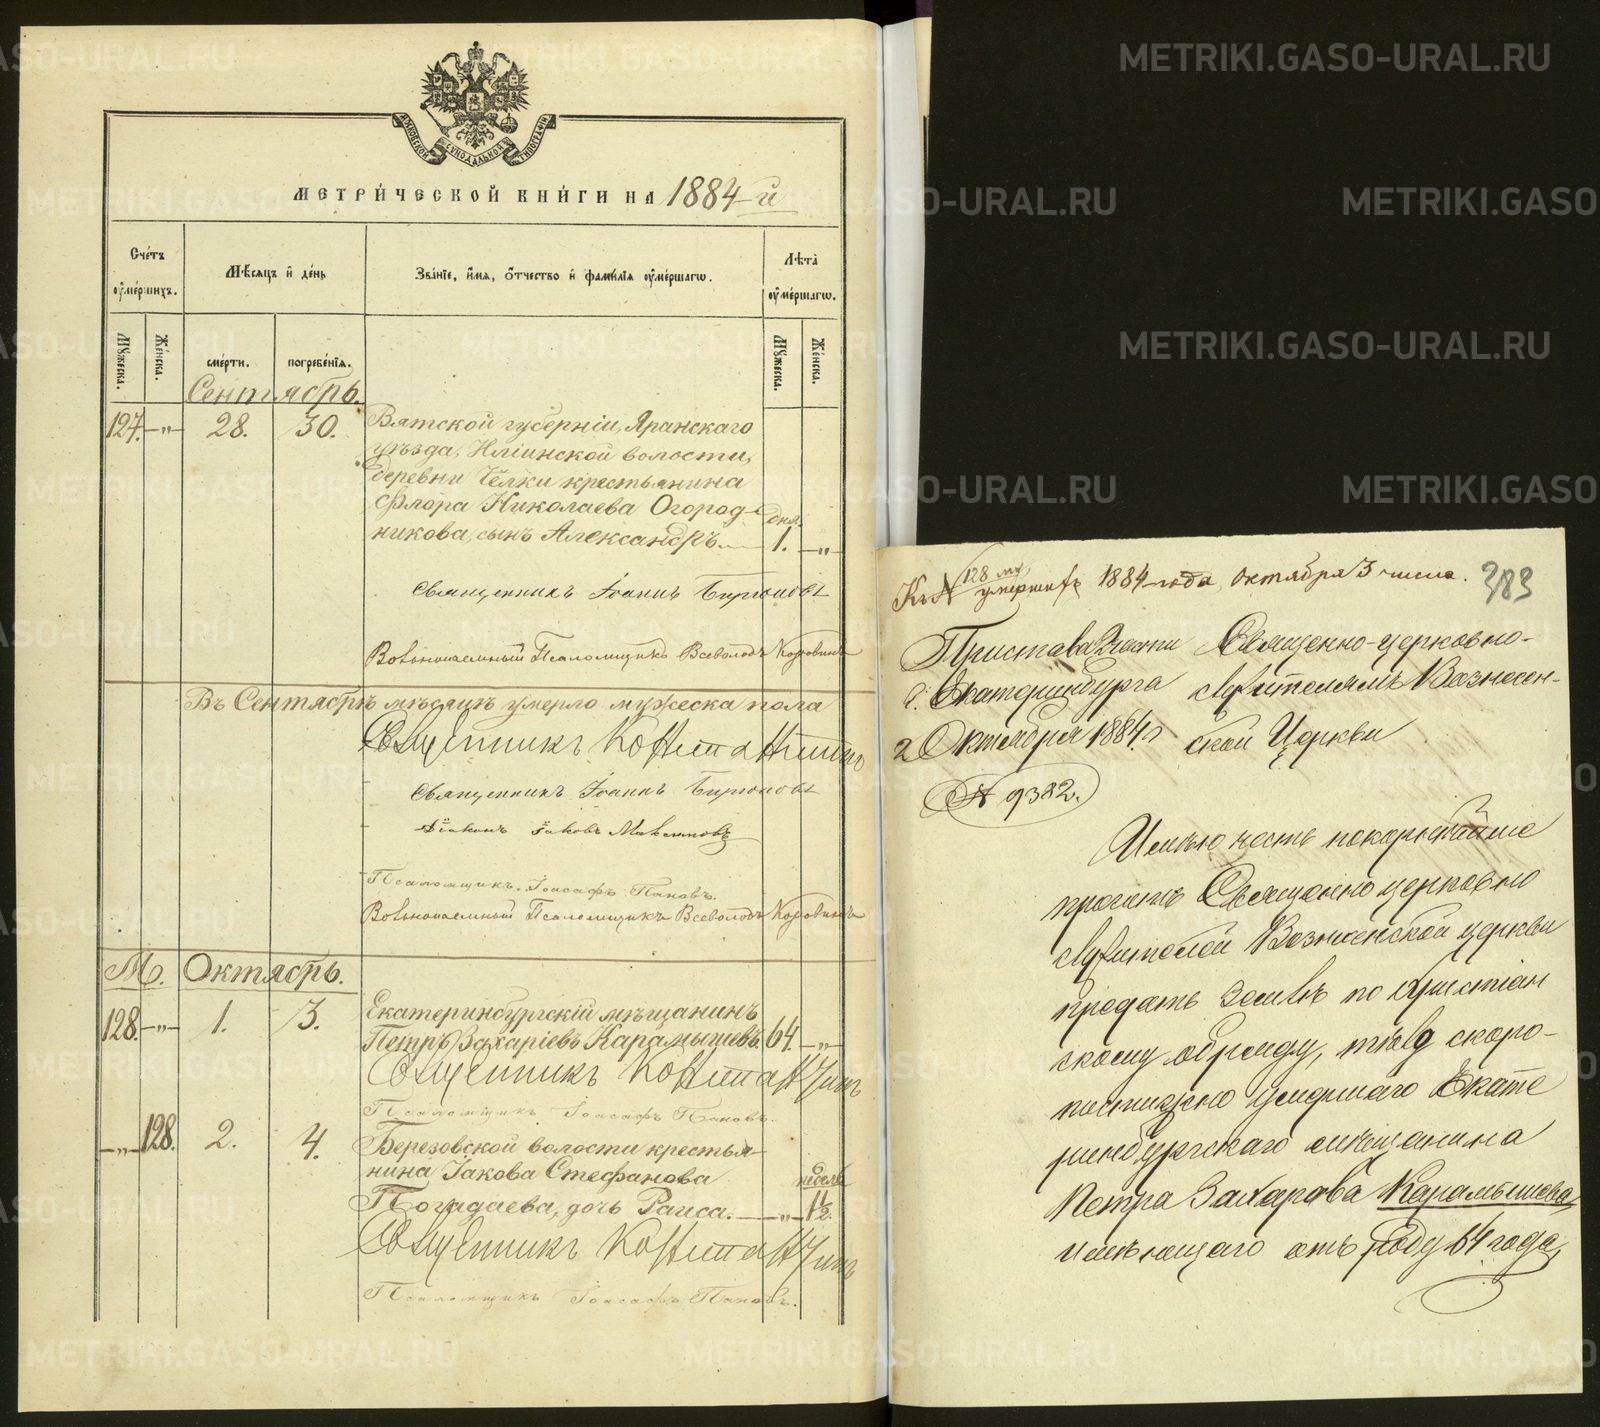 МЕТРИ́ЧЕСКОЙ КНИ́ГИ НА 1884-й
Сче́тъ ѹ҆ме́ршихъ.
Мѣ́сяцъ и҆ де́нь
Зва́нїе, и҆́мя, ѻ҆́тчество и҆ фами́лїя ѹ҆ме́ршагѡ.
Лѣта̀ ѹ҆ме́ршагѡ.
Мꙋ́жеска.
Же́нска.
сме́рти.
погребе́нїя.
Мꙋ́жеска.
Же́нска.
Сентябрь.
127. —„— 28. 30. Вятской губерніи, Яранскаго
уѣзда, волости,
деревни Челки крестьянина
Флора Николаева Огород-
никова, сынъ Александръ. дня 1. —„—
Священникъ Іоаннъ Бирюковъ
Вольнонаемный Псаломщикъ Всеволодъ Коровинъ
Въ Сентябрѣ мѣсяцѣ умерло мужеска пола
Священникъ
Священникъ Іоаннъ Бирюковъ
Діаконъ Іаковъ
Псаломщикъ Іоасафъ Пановъ.
Вольнонаемный Псаломщикъ Всеволодъ Коровинъ
М. Октябрь.
128. —„— 1. 3. Екатеринбургскій мѣщанинъ
Петръ Захаріевъ Карамышевъ. 64. —„—
Священникъ
Псаломщикъ Іоасафъ Пановъ.
—„— 128. 2. 4. Березовской волости крестья-
нина Іакова Стефанова недѣль
Погадаева, дочь Раиса. —„— 1½
Священникъ
Псаломщикъ Іоасафъ Пановъ.
Къ № 128 му умершихъ 1884 года, октября 3 числа. 383
Пристава 2 части
г. Екатеринбурга
2 Октября 1884 г
№ 9382.
Священно-церковно-
служителямъ Вознесен-
ской Церкви
Имѣю честь покорнѣйше
просить Священно церковно
служителей Вознесенской церкви
предать землѣ по христіан
скому обряду, тѣло скоро-
постижно умершаго Екате
ринбургскаго мѣщанина
Петра Захарова Карамышева,
имѣющаго отъ роду 64 года,
METRIKI.GASO-URAL.RU